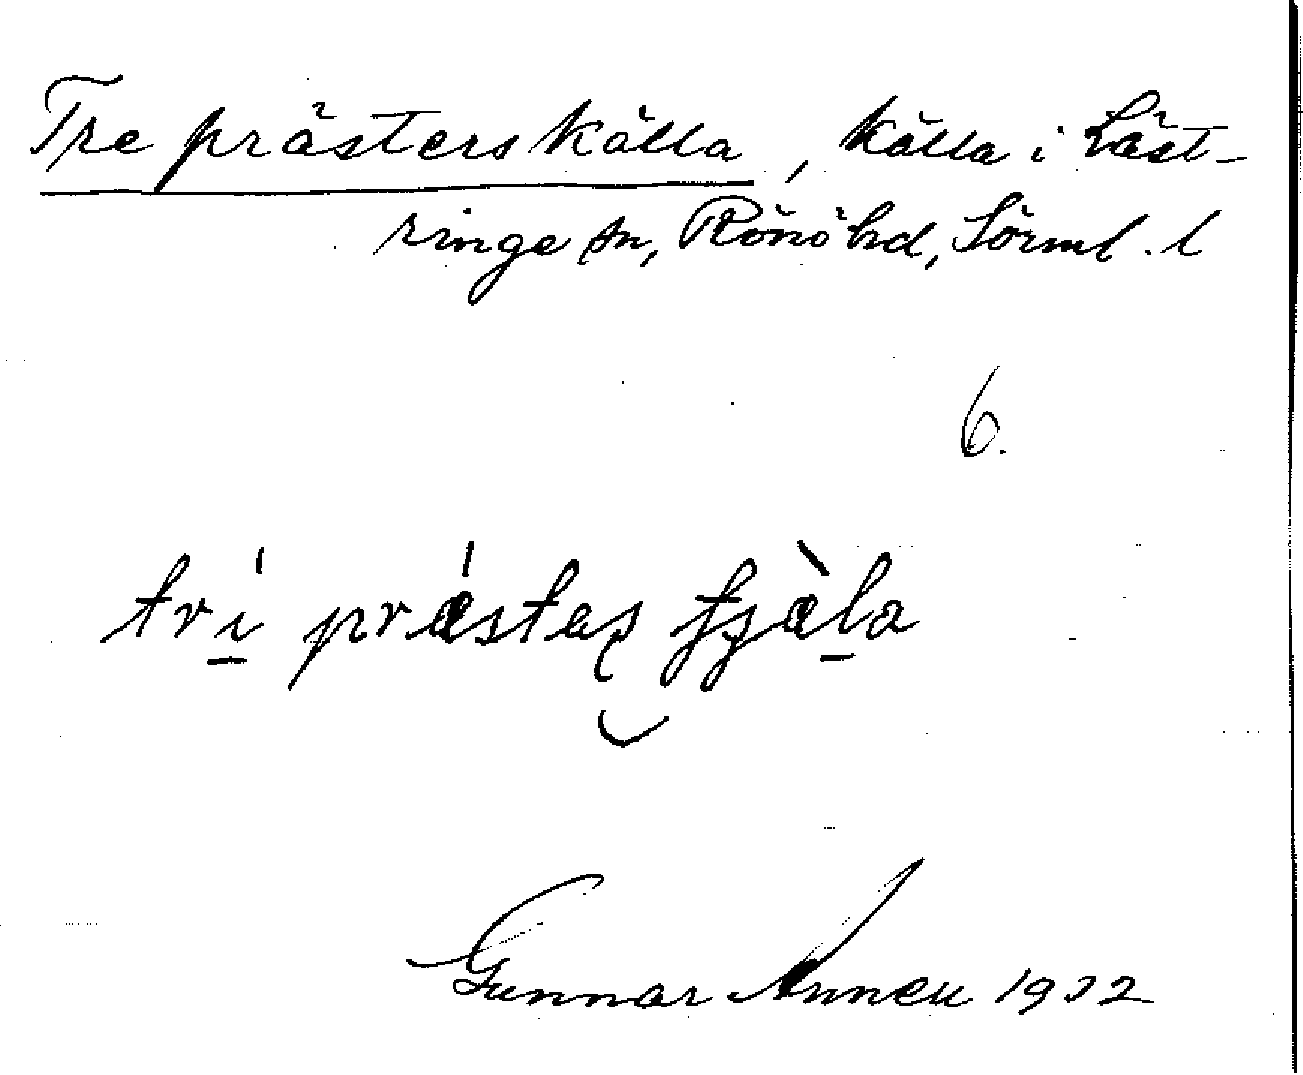 Tre prästers källa, källa i Läst-
ringe sn, Rönö hd, Sörml. l
6.
trí prǽstas tjæ̀la
Gunnar Annell 1932